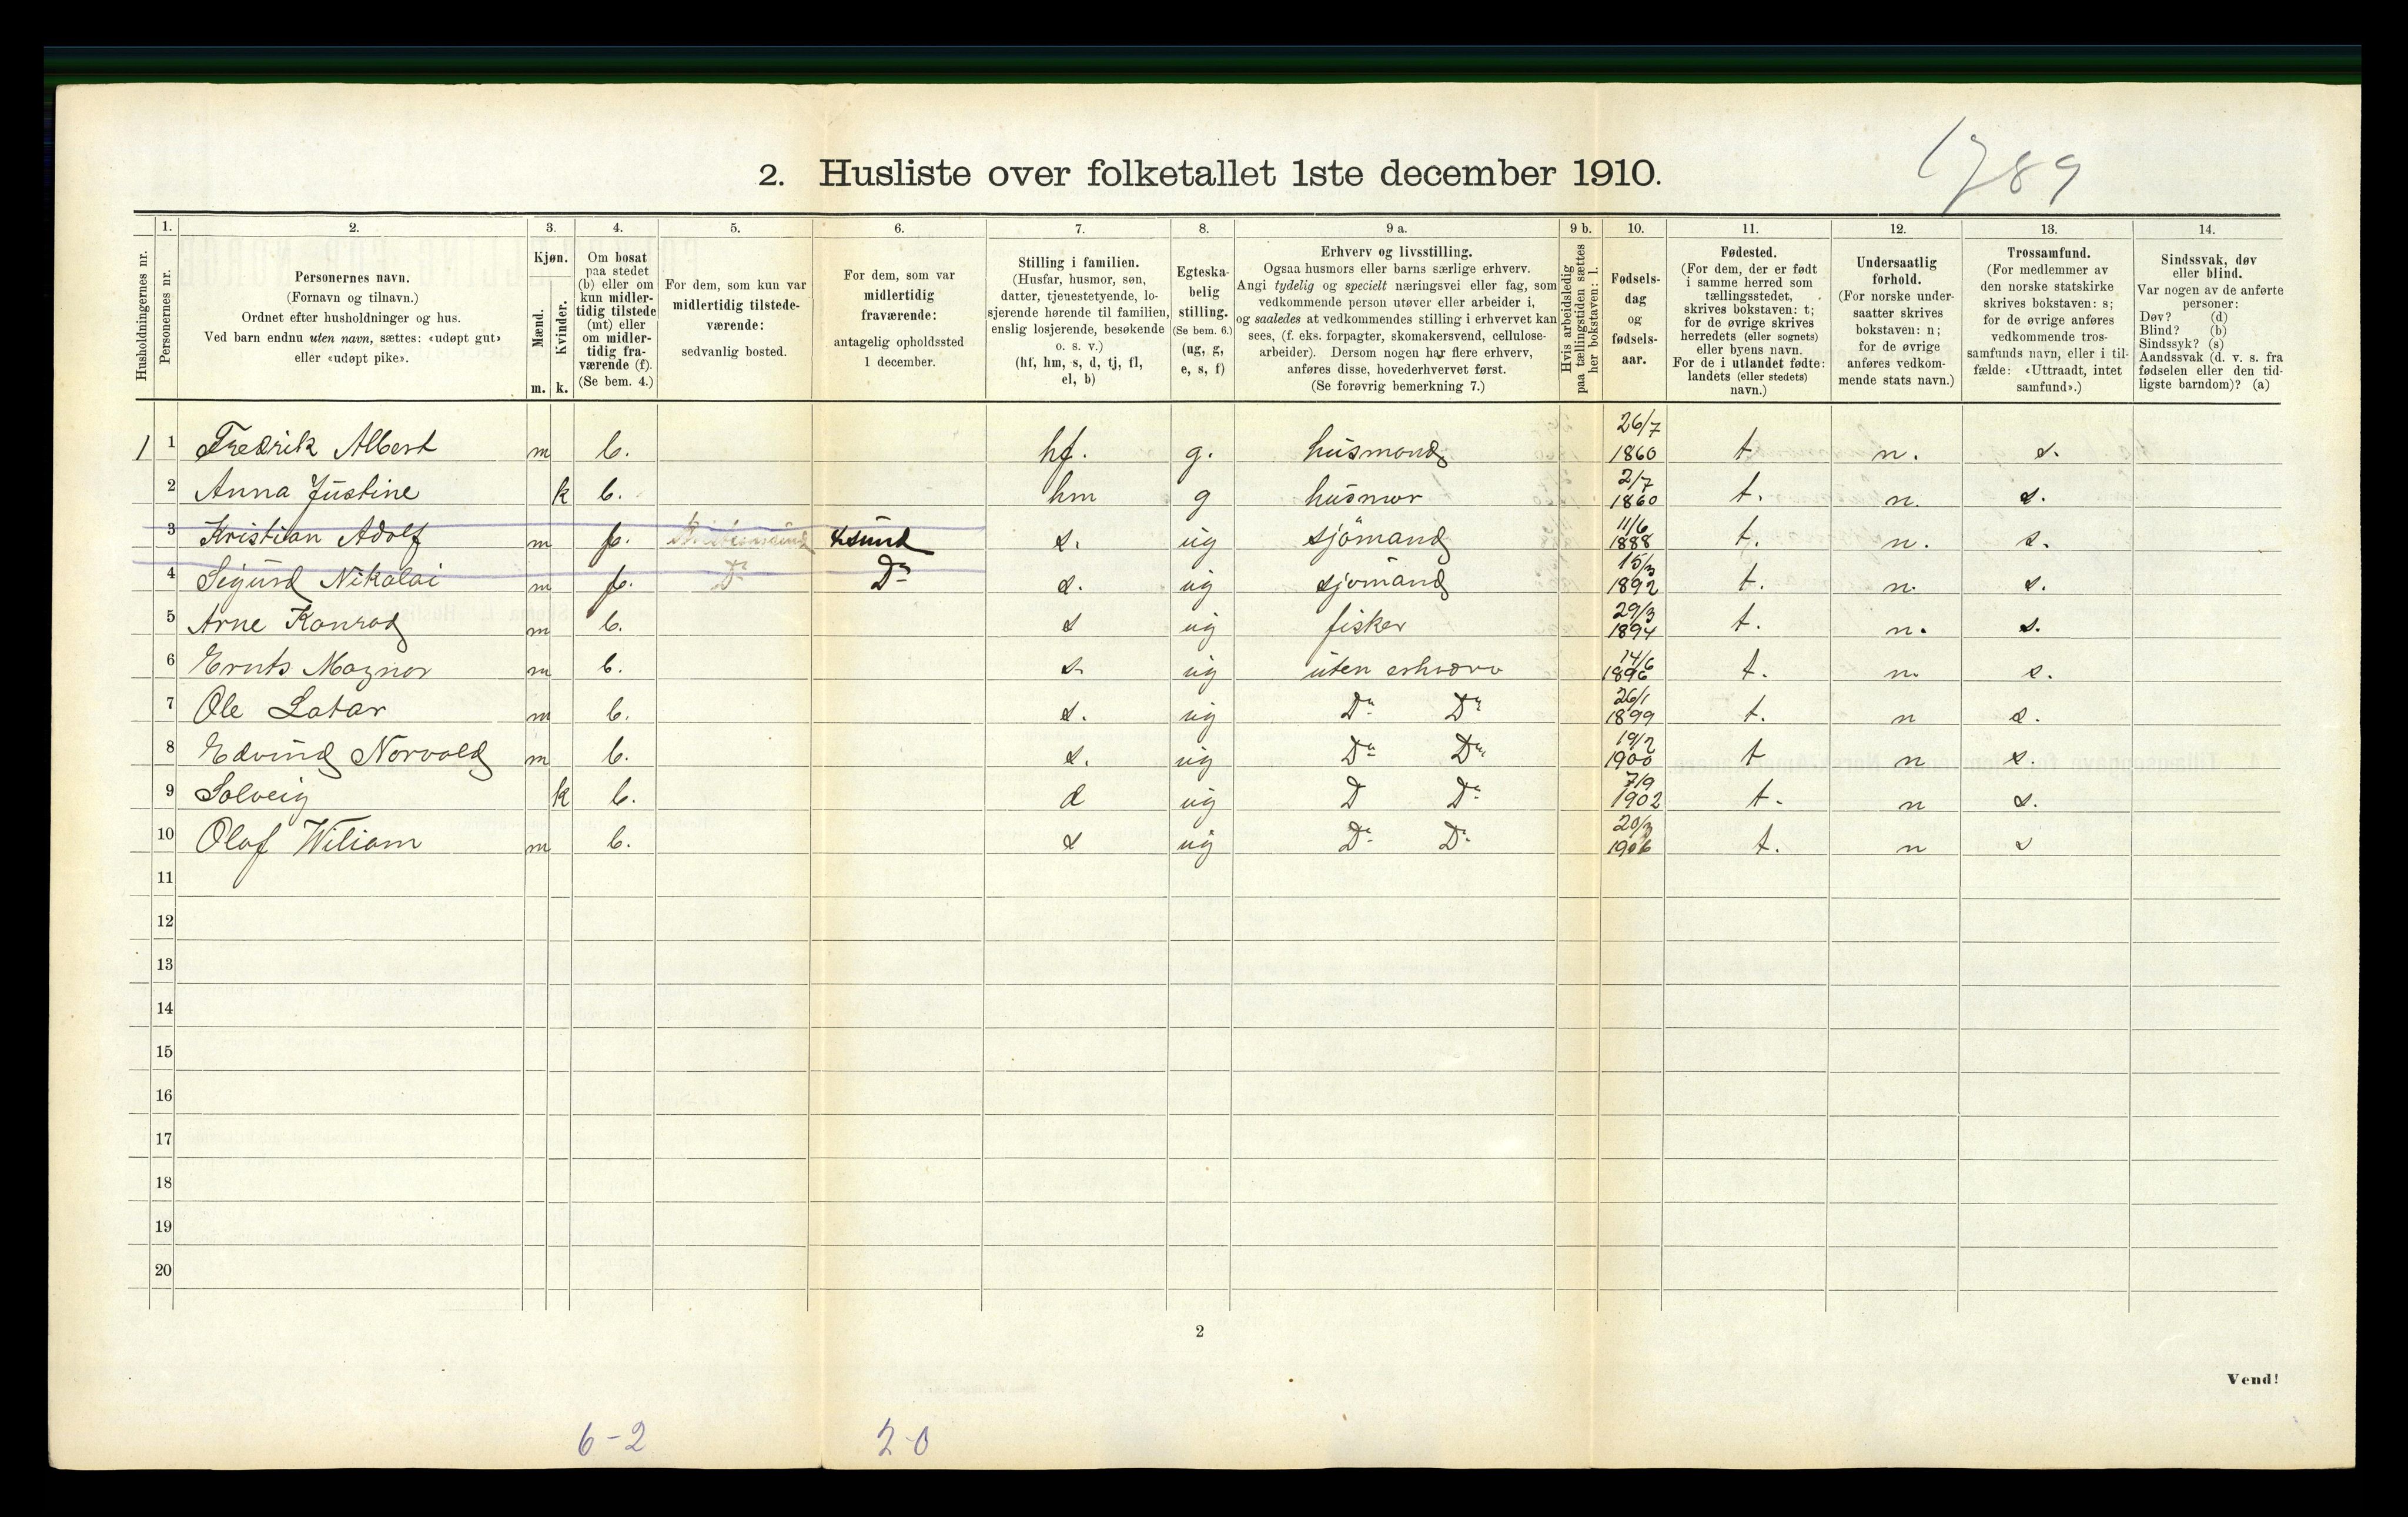 1789
2. Husliste over folketallet 1ste december 1910.
Husholdningernes nr.
1. Personernes nr.
2. Personernes navn. (Fornavn og tilnavn.) Ordnet efter husholdninger og hus. Ved barn endnu uten navn, sættes: «udøpt gut» eller «udøpt pike».
3. Kjøn. Mænd. m. Kvinder. k.
4. Om bosat paa stedet (b) eller om kun midlertidig tilstede (mt) eller om midlertidig fraværende (f). (Se bem. 4.)
5. For dem, som kun var midlertidig tilstedeværende: sedvanlig bosted.
6. For dem, som var midlertidig fraværende: antagelig opholdssted 1 december.
7. Stilling i familien. (Husfar, husmor, søn, datter, tjenestetyende, losjerende hørende til familien, enslig losjerende, besøkende o. s. v.) (hf, hm, s, d, tj, fl, el, b)
8. Egteskabelig stilling. (Se bem. 6.) (ug, g, e, s, f)
9 a. Erhverv og livsstilling. Ogsaa husmors eller barns særlige erhverv. Angi tydelig og specielt næringsvei eller fag, som vedkommende person utøver eller arbeider i, og saaledes at vedkommendes stilling i erhvervet kan sees, (f. eks. forpagter, skomakersvend, cellulosearbeider). Dersom nogen har flere erhverv, anføres disse, hovederhvervet først. (Se forøvrig bemerkning 7.)
9 b. Hvis arbeidsledig paa tællingstiden sættes her bokstaven: l.
10. Fødselsdag og fødselsaar.
11. Fødested. (For dem, der er født i samme herred som tællingsstedet, skrives bokstaven: t; for de øvrige skrives herredets (eller sognets) eller byens navn. For de i utlandet fødte: landets (eller stedets) navn.)
12. Undersaatlig forhold. (For norske undersaatter skrives bokstaven: n; for de øvrige anføres vedkommende stats navn.)
13. Trossamfund. (For medlemmer av den norske statskirke skrives bokstaven: s; for de øvrige anføres vedkommende trossamfunds navn, eller i tilfælde: «Uttraadt, intet samfund».)
14. Sindssvak, døv eller blind. Var nogen av de anførte personer: Døv? (d) Blind? (b) Sindssyk? (s) Aandssvak (d. v. s. fra fødselen eller den tidligste barndom)? (a)
1 1 Fredrik Albert m b. hf. g. husmand 26/7 1860 t n. s.
2 Anna Justine k b. hm g husmor 2/7 1860 t. n. s.
3 Kristian Adolf m f. Kristiansund Ksund s. ug sjömand 11/6 1888 t. n. s.
4 Sigurd Nikolai m f. Do Do s. ug sjömand 15/3 1892 t. n. s.
5 Arne Konrad m b. s ug fisker 29/3 1894 t. n. s.
6 Ernts Magnor m b. s. ug uten erhverv 14/6 1896 t. n. s.
7 Ole Lotar m b. s. ug Do Do 26/1 1899 t. n s.
8 Edvind Norvald m b. s. ug Do Do 19/2 1900 t n s.
9 Solveig k b. d ug D Do 7/9 1902 t. n s.
10 Olaf Wiliam m b. s ug Do Do 20/3 1906 t. n s
11
12
13
14
15
16
17
18
19
20
2
Vend!
6-2 2-0